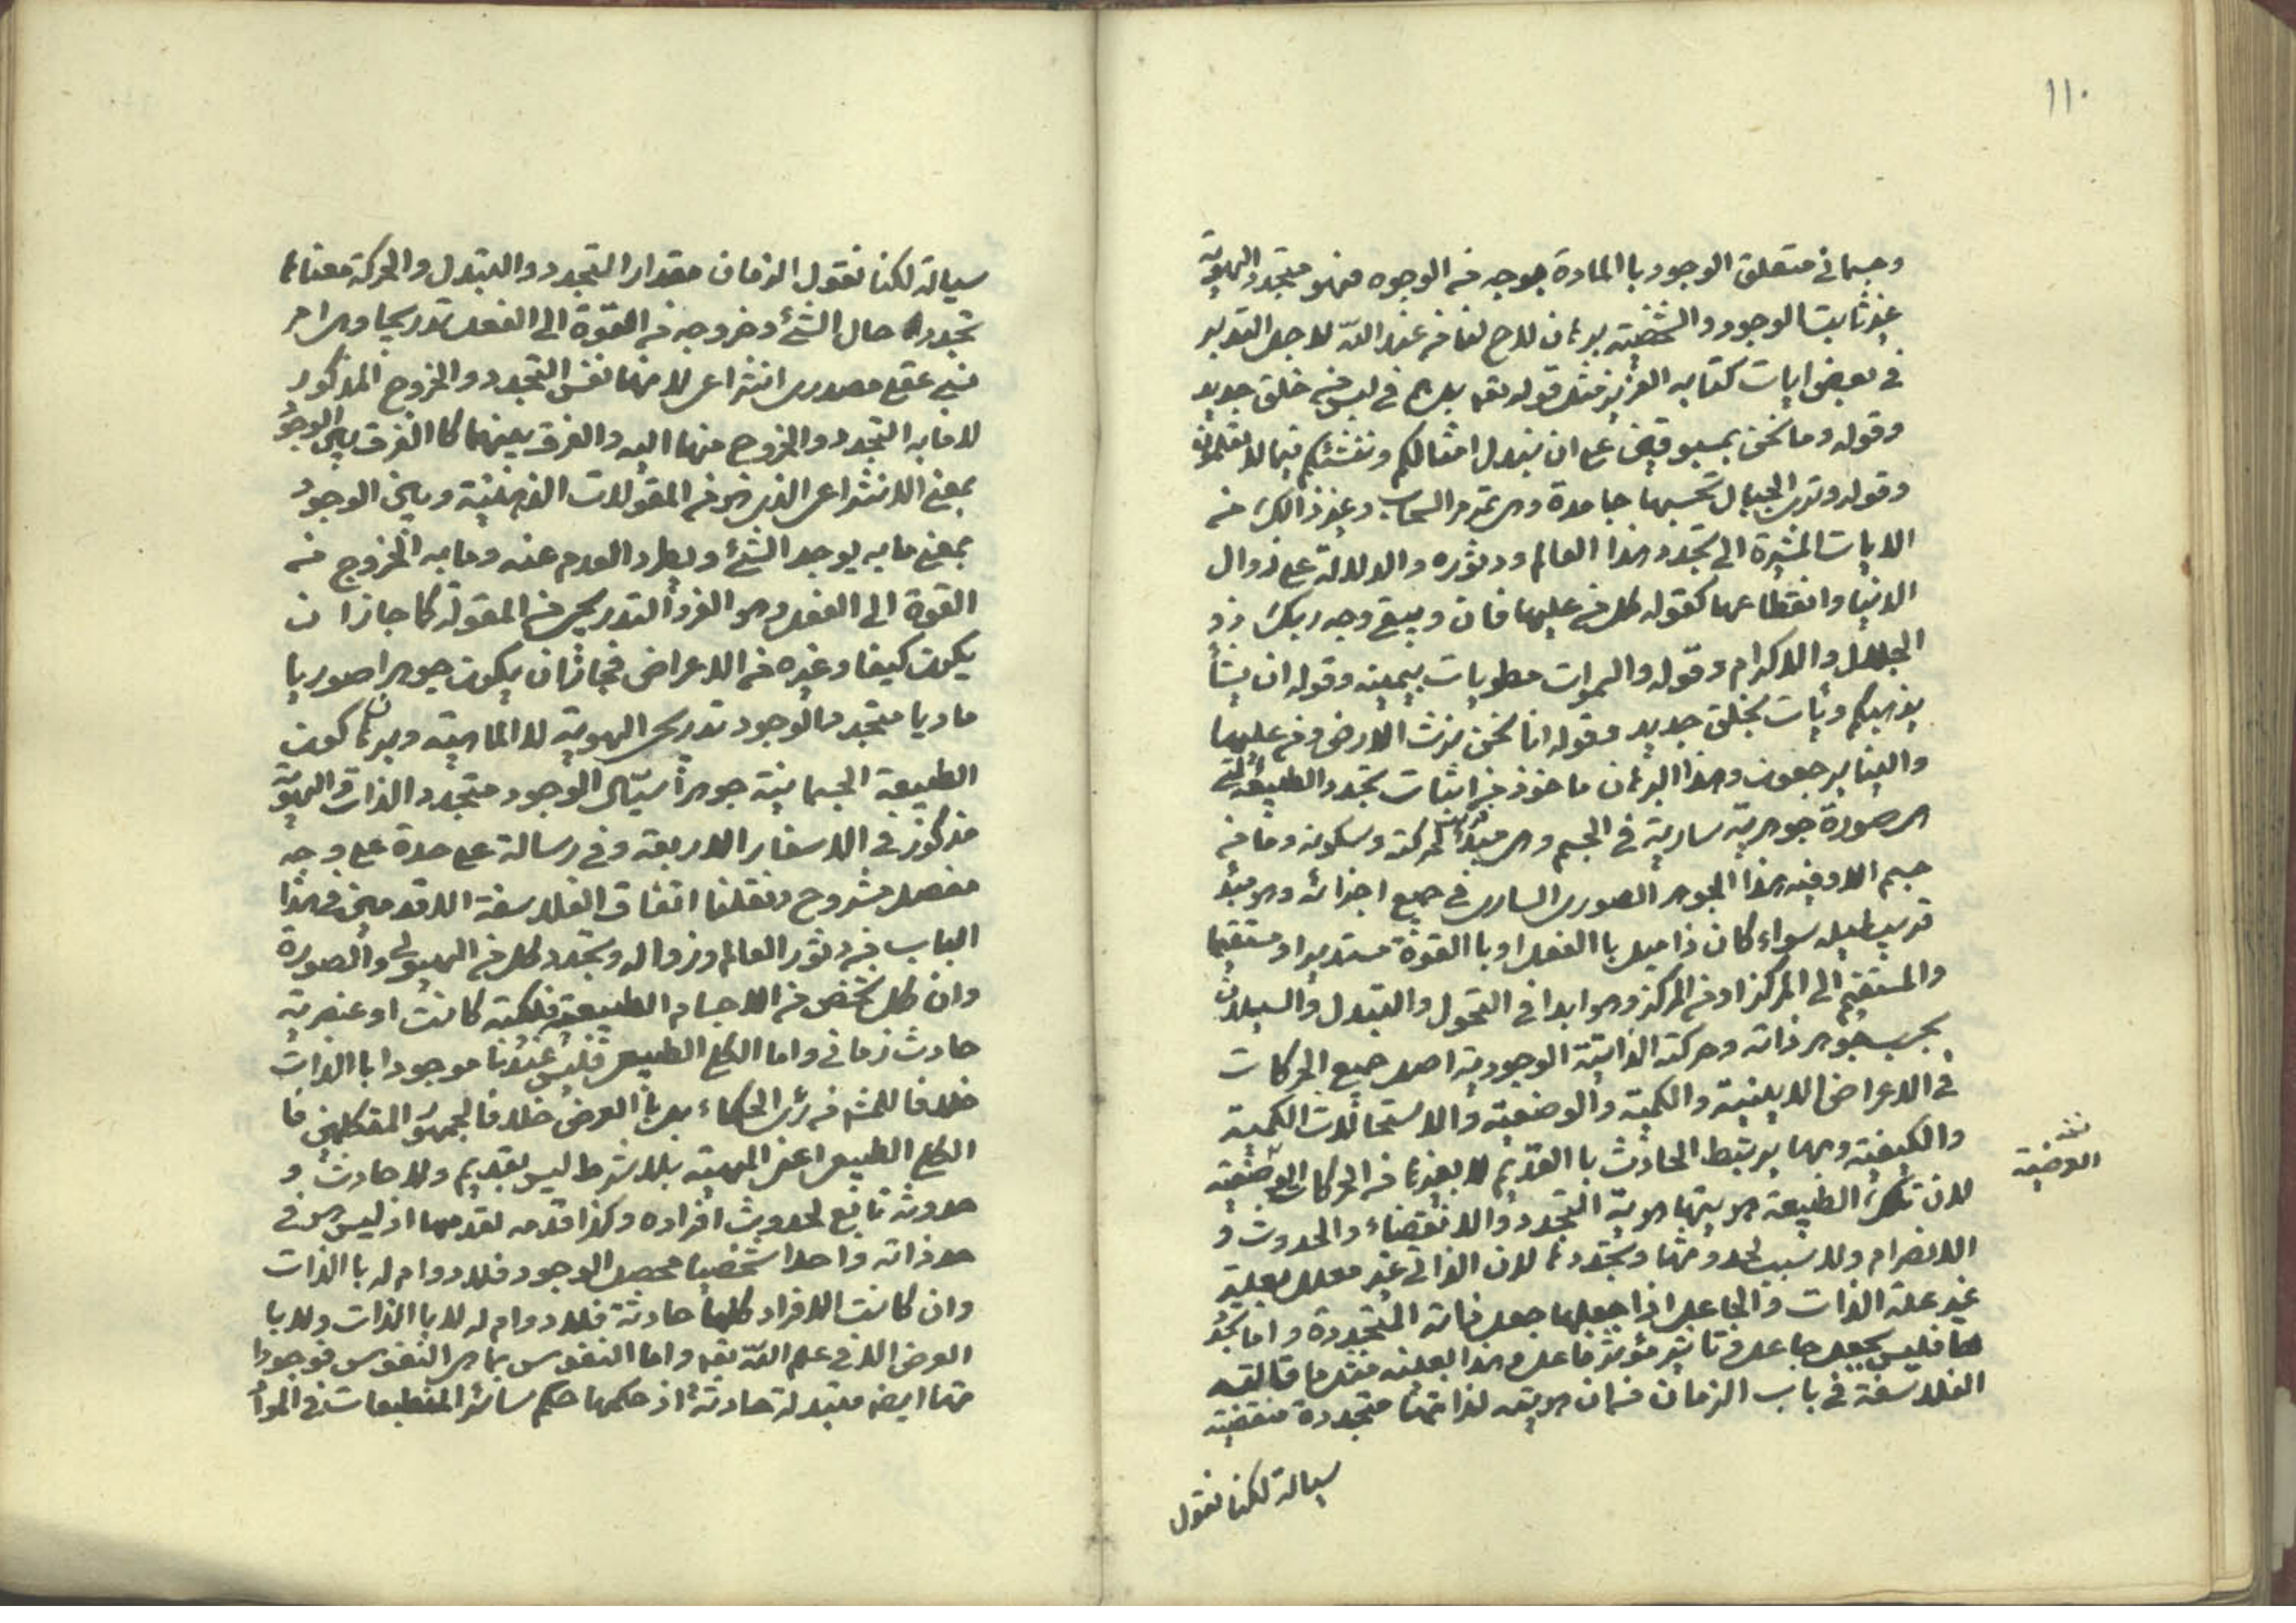 ١١٠
وجسمانى متعلق الوجود با المادة بوجه من الوجوه فهو متجدد الهوية
غير ثابت الوجود والشخصية ببرهان لاح لنا من عند الله لاجل التدبر
فى بعض ايات كتابه العزيز مثل قوله تعه بل هم فى لبس من خلق جديد
وقوله وما نحن بمسبوقين على ان نبدل امثالكم وننشئكم فيما لا تعلمون
وقوله وترى الجبال تحسبها جامدة وهى تمر مر السحاب وغير ذالك من
الايات المشيرة الى تجدد هذا العالم ودثوره والدلالة على زوال
الدنيا وانقطاعها كقوله كل من عليها فان ويبقى وجه ربك ذو
الجلال والاكرام وقوله والسموات مطويات بيمينه وقوله ان يشأ
يذهبكم ويأت بخلق جديد وقوله انا نحن نرث الارض ومن عليها
والينا يرجعون وهذا البرهان ماخوذ من اثبات تجدد الطبيعة التى
هى صورة جوهرية سارية فى الجسم وهى مبدء لحركته وسكونه وما من
جسم الا وفيه هذا الجوهر الصورى السارى فى جميع اجزائه وهو مبدء
قريب لميله سواء كان ذا ميل با الفعل او با القوة مستديرا او مستقيما
والمستقيم الى المركز او من المركز وهو ابدا فى التحول والتبدل والسيلان
بحسب جوهر ذاته وحركته الذاتية الوجودية اصل جميع الحركات
فى الاعراض الاينية والكمية والوضعية والاستحالات الكمية
والكيفية وبها يرتبط الحادث با القديم لا بغيرها من الحركات العرضية
العرضية
لان تلك الطبيعة هويتها هوية التجدد والانقضاء والحدوث و
الانصرام ولا سبب لحدوثها وتجددها لان الذاتى غير معلل بعلة
غير علة الذات والجاعل اذا جعلها جعل ذاته المتجددة واما تجدد
ها فليس بجعل جاعل وتاثير مؤثر فاعل وهذا بعينه مثل ما قالته
الفلاسفة فى باب الزمان فان هويته لذاتها متجددة منقضية
سيالة لكنا نقول
سيالة لكنا نقول الزمان مقدار التجدد والتبدل والحركة معناها
تجدد حال الشئ وخروجه من القوة الى الفعل تدريجا وهى امر
نسبى عقلى مصدرى انتزاعى لانها نفس التجدد والخروج المذكور
لا ما به التجدد والخروج منها اليه والفرق بينهما كا الفرق بين الوجود
بمعنى الانتزاعى الذى هو من المقولات الذهنية وبين الوجود
بمعنى ما به يوجد الشئ ويطرد العدم عنه وما به الخروج من
القوة الى الفعل وهو الفرد التدريجى من المقولة كما جاز ان
يكون كيفا وغيره من الاعراض فجاز ان يكون جوهرا صوريا
ماديا متجدد الوجود تدريجى الهوية لا الماهية وبرهان كون
الطبيعة الجسمانية جوهراً سيّال الوجود متجدد الذات والهويّة
مذكور فى الاسفار الاربعة وفى رسالة على حدة على وجه
مفصل مشروح ونقلنا اتفاق الفلاسفة الاقدمين فى هذا
الباب من دثور العالم وزواله وتجدد كل من الهيولى والصورة
وان كل شخص من الاجسام الطبيعية فلكية كانت او عنصرية
حادث زمانى واما الكلى الطبيعى فليس عندنا موجودا با الذات
خلافا للمشهور من رئ الحكماء بل با العرض خلافا لجمهور المتكلمين فا
الكلى الطبيعى اعنى المهية بلا شرط ليس بقديم ولا حادث و
حدوثه تابع لحدوث افراده وكذا قدمه لقدمها اذ ليس هو فى
حد ذاته واحدا شخصيا محصل الوجود فلا دوام له با الذات
وان كانت الافراد كلها حادثة فلا دوام له لا با الذات ولا با
العرض الا فى علم الله تعه واما النفوس بما هى النفوس فوجودا
تها ايضه متبدلة حادثة اذ حكمها حكم سائر المنطبعات فى الموا